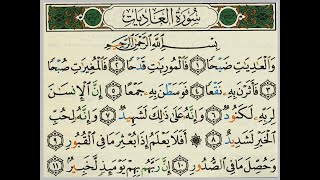 سورة العاديات
بسم الله الرحمن الرحيم
وَالْعَادِيَاتِ ضَبْحًا ١ فَالْمُورِيَاتِ قَدْحًا ٢ فَالْمُغِيرَاتِ صُبْحًا
٣ فَأَثَرْنَ بِهِ نَقْعًا ٤ فَوَسَطْنَ بِهِ جَمْعًا ٥ إِنَّ الْإِنْسَانَ
لِرَبِّهِ لَكَنُودٌ ٦ وَإِنَّهُ عَلَى ذَلِكَ لَشَهِيدٌ ٧ وَإِنَّهُ لِحُبِّ
الْخَيْرِ لَشَدِيدٌ ٨ أَفَلَا يَعْلَمُ إِذَا بُعْثِرَ مَا فِي الْقُبُورِ ٩
وَحُصِّلَ مَا فِي الصُّدُورِ ١٠ إِنَّ رَبَّهُمْ بِهِمْ يَوْمَئِذٍ لَخَبِيرٌ ١١